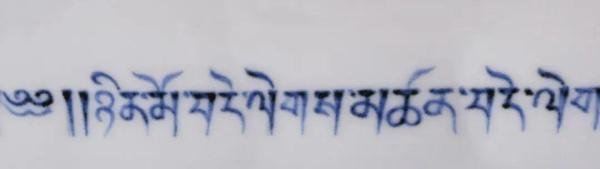 ༄༅།།ཉིན་མོ་བདེ་ལེགས་མཚན་བདེ་ལེག